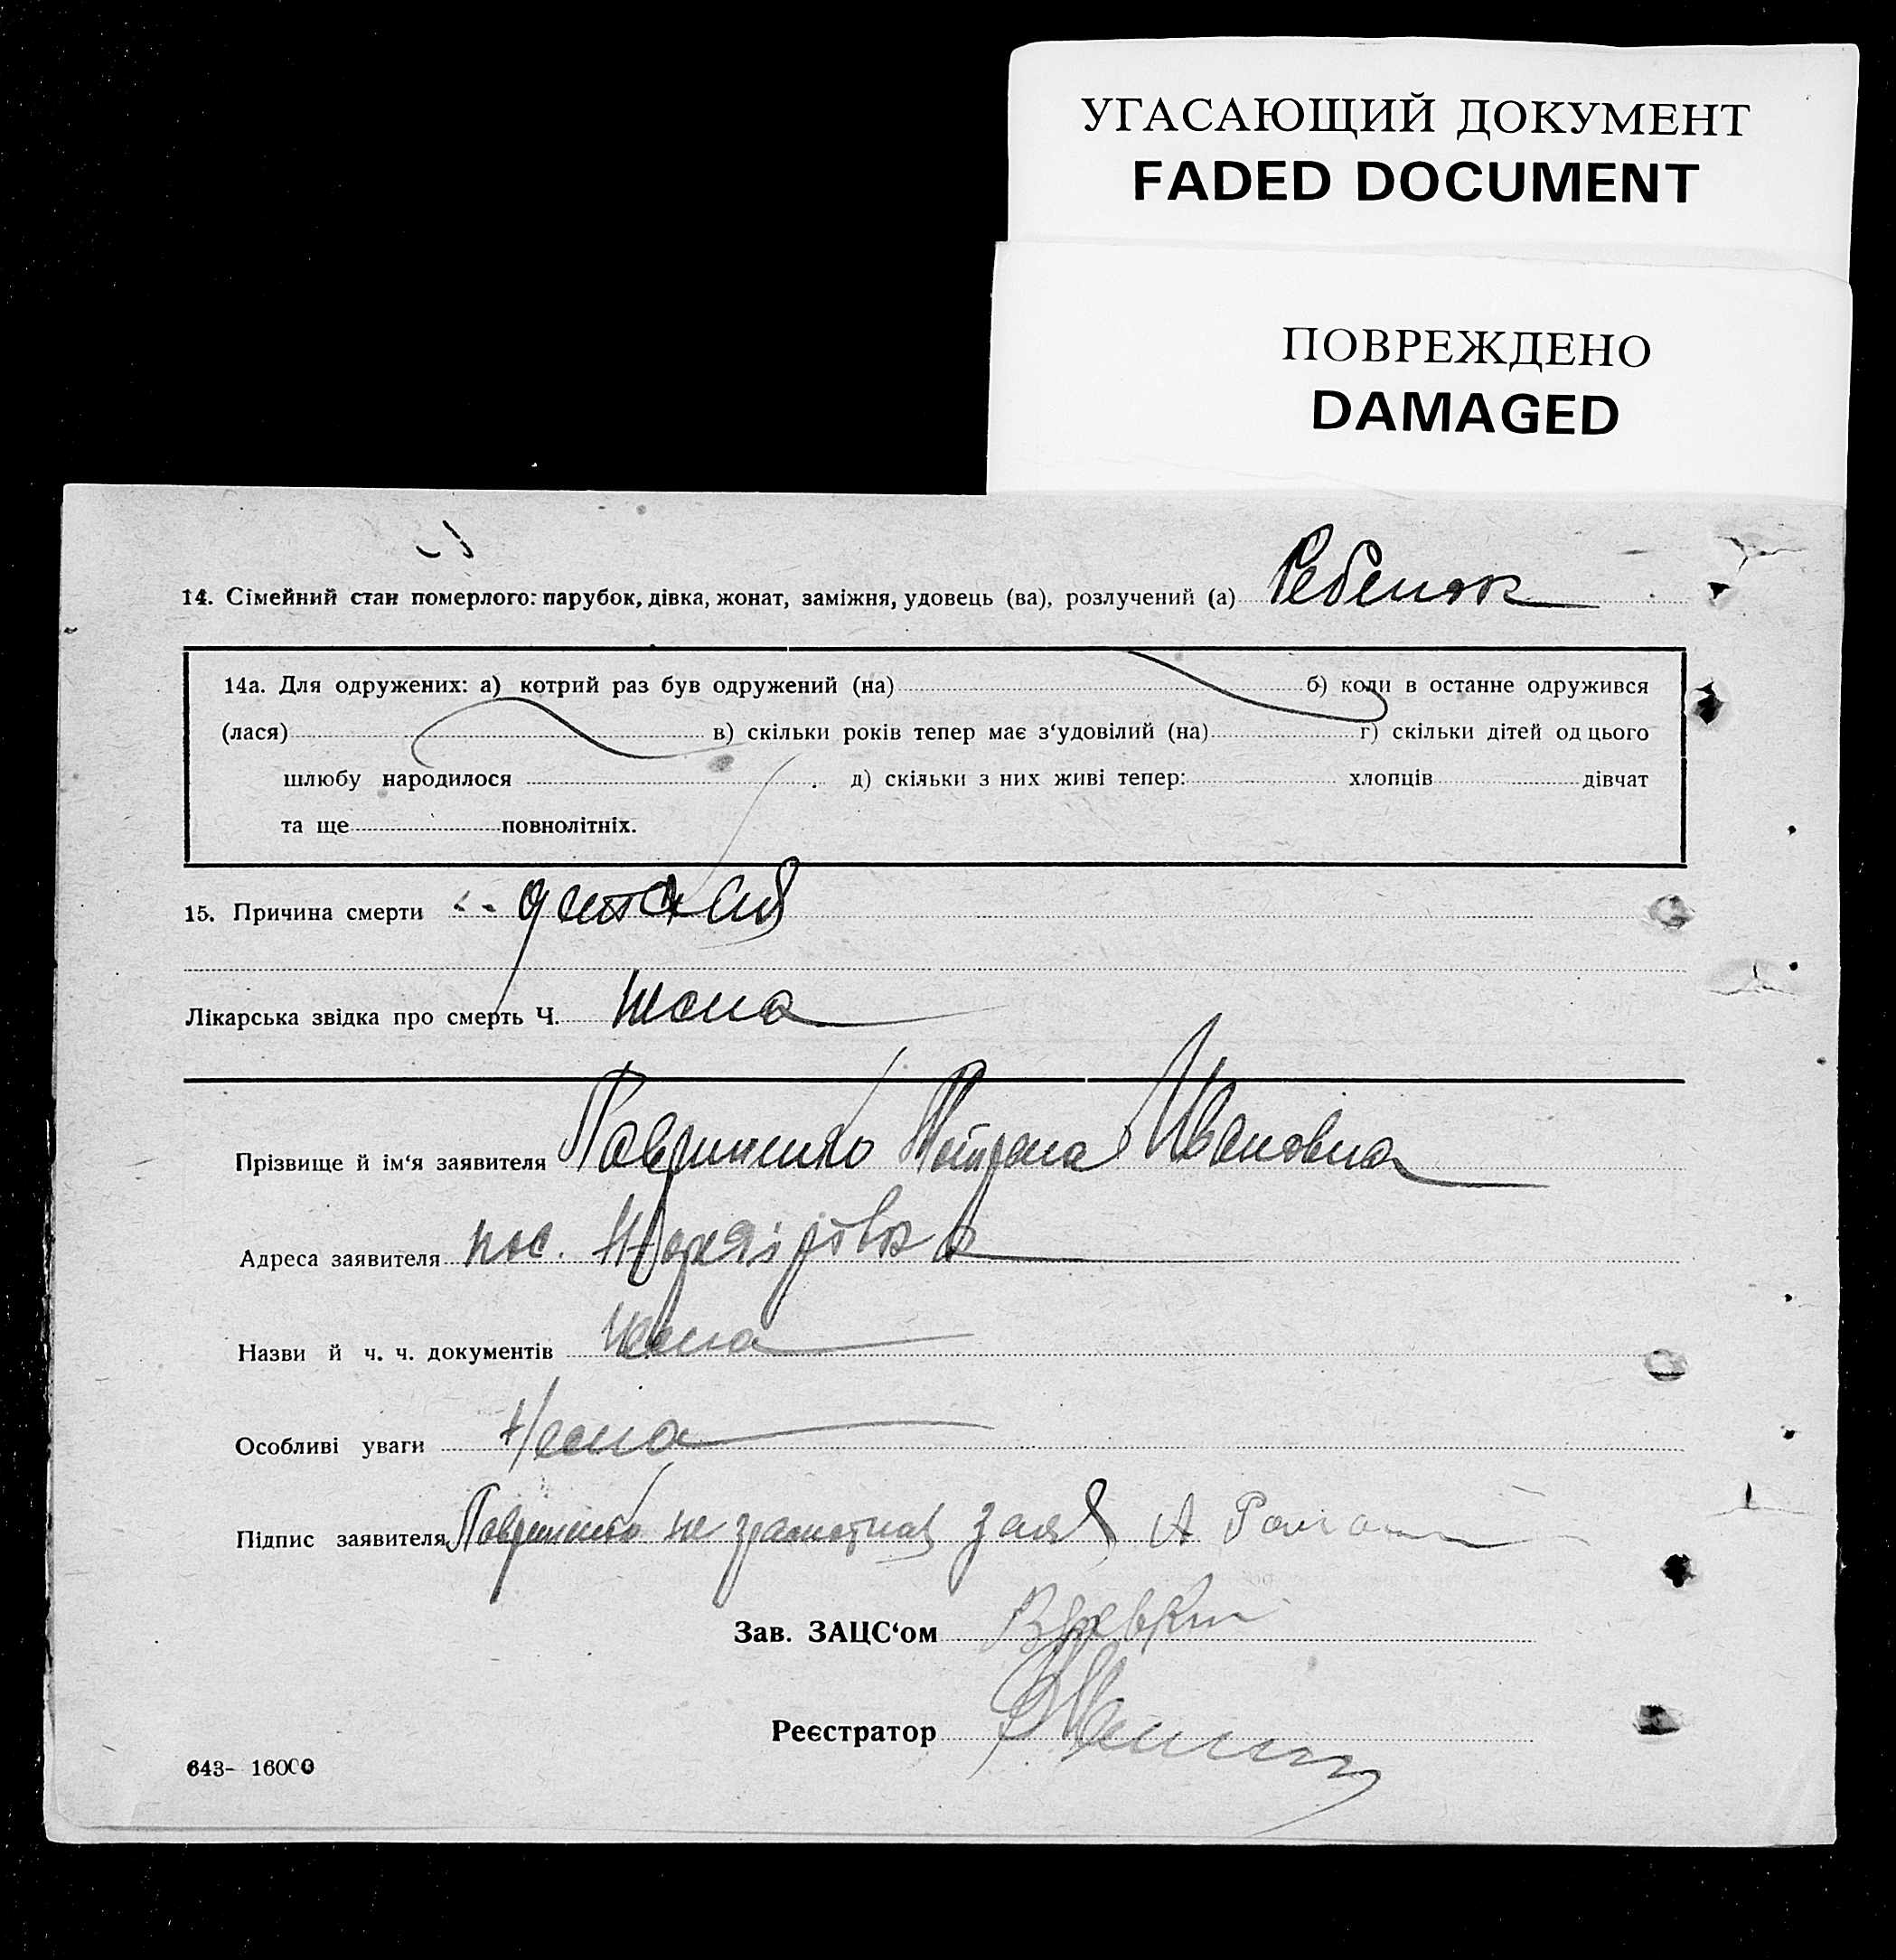 УГАСАЮЩИЙ ДОКУМЕНТ
FADED DOCUMENT
ПОВРЕЖДЕНО
DAMAGED
14. Сімейний стан померлого: парубок, дівка, жонат, заміжня, удовець (ва), розлучений (а) Ребенок
14а. Для одружених: а) котрий раз був одружений (на) б) коли в останне одружився
(лася) в) скільки років тепер має з‘удовілий (на) г) скільки дітей од цього
шлюбу народилося д) скільки з них живі тепер: хлопців дівчат
та ще повнолітніх.
15. Причина смерти
Лікарська звідка про смерть Ч. Нема
Прізвище й ім‘я заявителя Ивановна
Адреса заявителя пос.
Назви й ч. ч. документів Нема
Особливі уваги Нема
Підпис заявителя не грамотная за А
Зав. ЗАЦС‘ом
Реєстратор
643- 16000